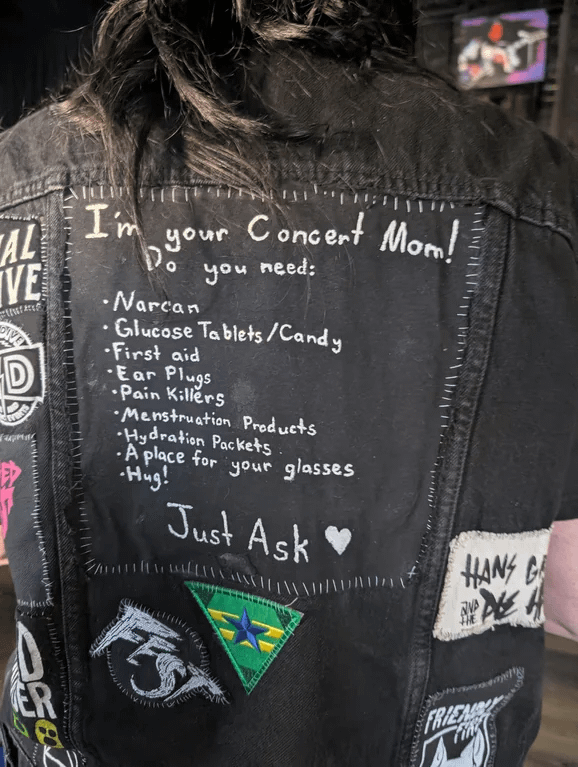 I'm your Concert Mom!
Do you need:
· Narcan
· Glucose Tablets/Candy
· First aid
· Ear Plugs
· Pain Killers
· Menstruation Products
· Hydration Packets
· A place for your glasses
· Hug!
Just Ask ♥
HANS
AND THE DIE
FRIENDLY
FIRE